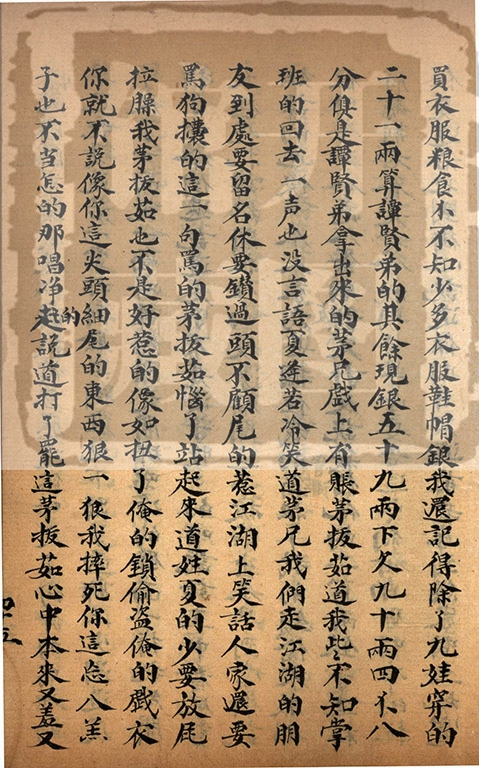 買衣服粮食不知少多衣服鞋帽銀我還記得除了九娃穿的
二十一兩算譚賢弟的其餘現銀五十九兩下欠九十兩四不八
分俱是譚賢弟拿出來的茅兄戲上有賬茅拔茹道我此不知掌
班的回去一声也没言語夏逢若冷笑道茅兄我們走江湖的朋
友到處要留名休要鑽過頭不顧尾的惹江湖上笑話人家還要
罵狗攮的這一句罵的茅拔茹惱了站起來道姓夏的少要放屁
拉臊我茅拔茹也不是好惹的像如扭了俺的鎖偷盗俺的戲衣
你就不說像你這尖頭細尾的東西狠一狠我摔死你這忘八羔
子也不当怎的那唱净的起說道打了罷這茅拔茹心中本來又羞又
四五